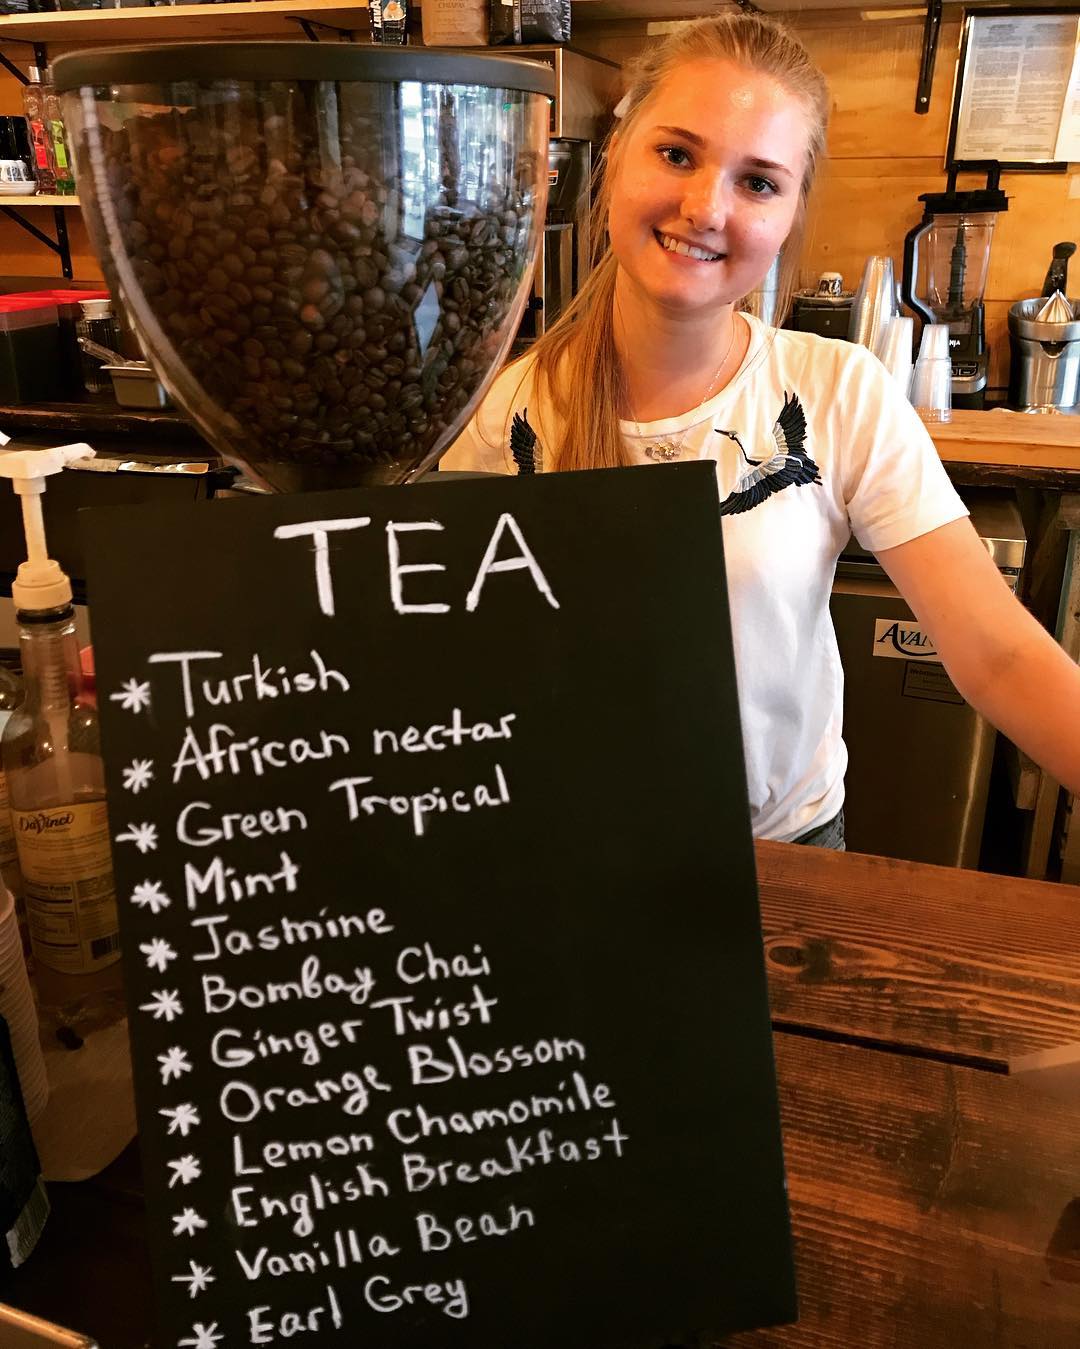 CHIAPAS
TEA
* Turkish
* African nectar
* Green Tropical
* Mint
* Jasmine
* Bombay Chai
* Ginger Twist
* Orange Blossom
* Lemon Chamomile
* English Breakfast
* Vanilla Bean
* Earl Grey
DaVinci
AVAN